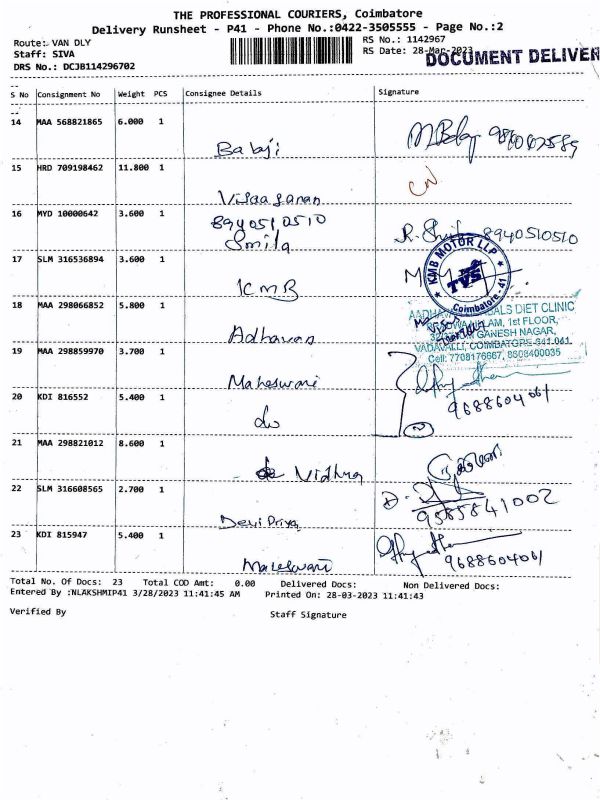 THE PROFESSIONAL COURIERS, Coimbatore
Delivery Runsheet - P41 - Phone No.:0422-3505555 - Page No.:2
Route: VAN DLY
RS No.: 1142967
Staff: SIVA
RS Date: 28-Mar-2023
DOCUMENT DELIVER
DRS No.: DCJB114296702
S No Consignment No Weight PCS Consignee Details Signature
14 MAA 568821865 6.000 1
Balaji
15 HRD 709198462 11.800 1
16 MYD 10000642 3.600 1
8940510510
Smila
8940510510
17 SLM 316536894 3.600 1
KMB
KMB MOTOR LLP
TVS
Coimbatore - 41
18 MAA 298066852 5.800 1
Adhavan
DIET CLINIC
1st FLOOR,
GANESH NAGAR,
VADAVALLI, COIMBATORE-641 041.
Cell: 7708176667, 8608400035
19 MAA 298859970 3.700 1
Maheswari
9688604061
20 KDI 816552 5.400 1
do
21 MAA 298821012 8.600 1
Vidhya
22 SLM 316608565 2.700 1
Devi Priya
9585841002
23 KDI 815947 5.400 1
Maheswari
9688604061
Total No. Of Docs: 23 Total COD Amt: 0.00 Delivered Docs: Non Delivered Docs:
Entered By :NLAKSHMIP41 3/28/2023 11:41:45 AM Printed On: 28-03-2023 11:41:43
Verified By Staff Signature